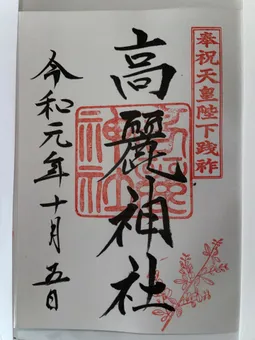 奉祝天皇陛下践祚
高麗神社
令和元年十月五日
高麗神社